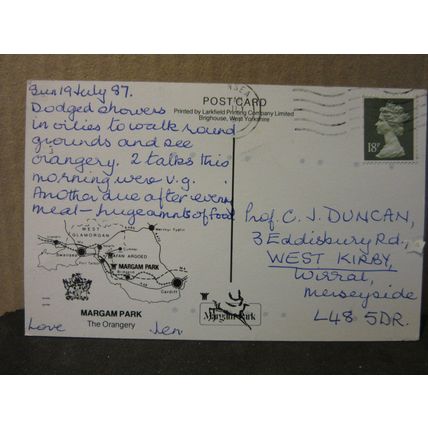 Sun 19 July 87.
Dodged showers
in oilies to walk round
grounds and see
orangery. 2 talks this
morning were v.g.
Another due after evening
meal - huge amnts of food
POST CARD
Printed by Larkfield Printing Company Limited
Brighouse, West Yorkshire
18P
Prof. C. J. DUNCAN,
3 Eddisbury Rd.,
WEST KIRBY,
Wirral,
Merseyside
L48 5DR.
WEST
GLAMORGAN
Merthyr Tydfil
Swansea
AFAN ARGOED
MARGAM PARK
Cardiff
MARGAM PARK
The Orangery
Margam Park
Love